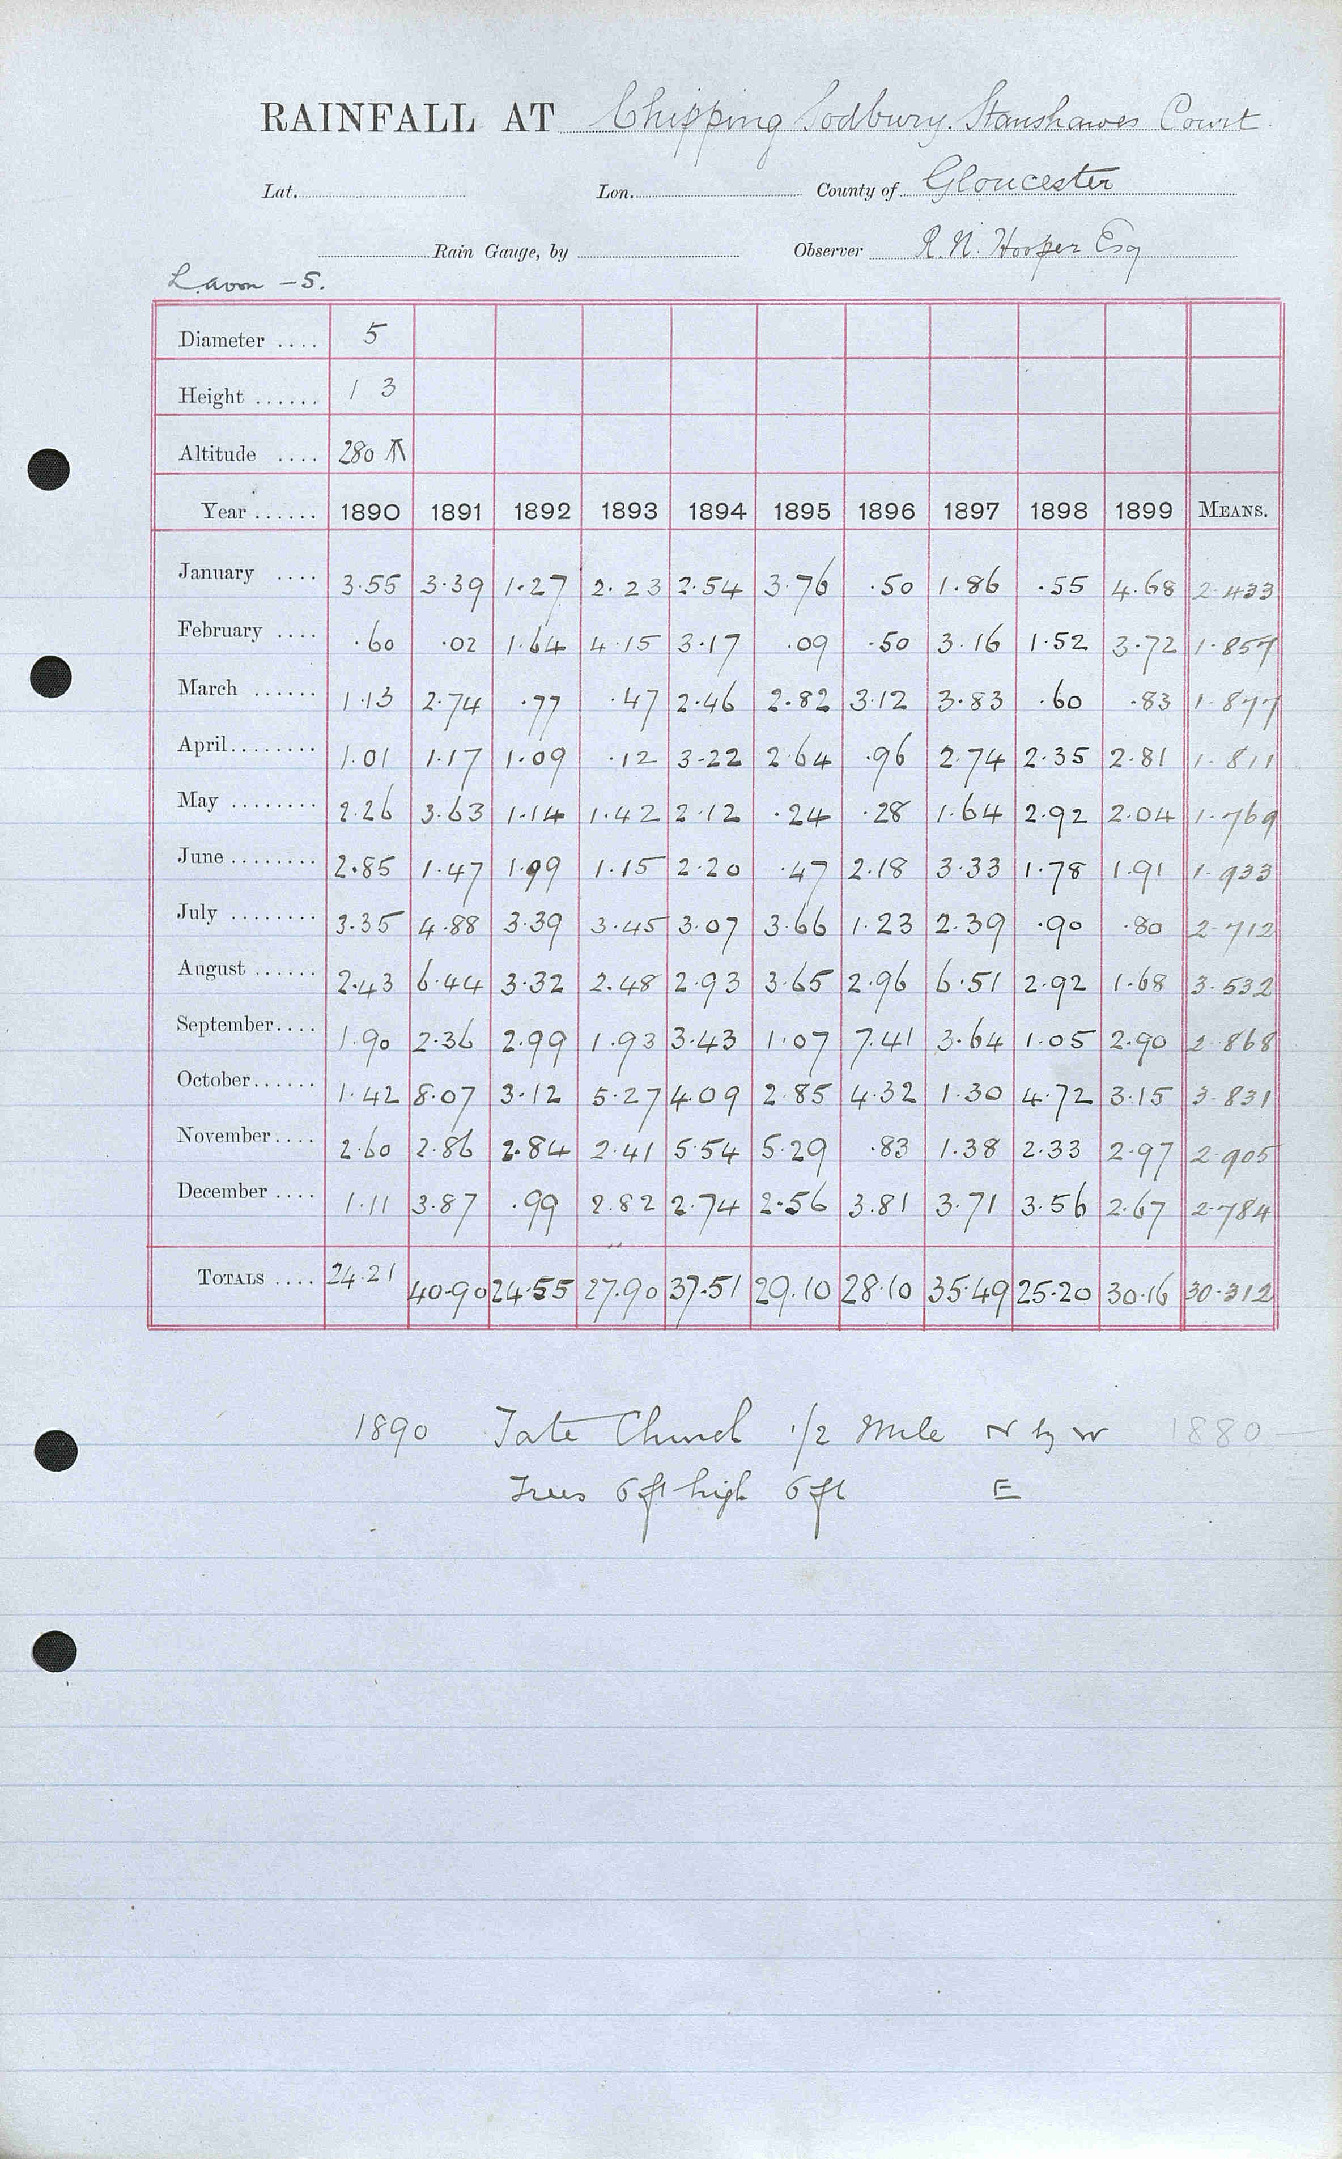 RAINFALL AT Chipping Sodbury. Stanshawes Court
Lat. Lon. County of Gloucester
Rain Gauge, by Observer R. N. Hooper Esq
L. avon - S.
Diameter .... 5
Height ...... 1 3
Altitude .... 280
Year ...... 1890 1891 1892 1893 1894 1895 1896 1897 1898 1899 MEANS.
January .... 3.55 3.39 1.27 2.23 2.54 3.76 .50 1.86 .55 4.68 2.433
February .... .60 .02 1.64 4.15 3.17 .09 .50 3.16 1.52 3.72 1.857
March ...... 1.13 2.74 .77 .47 2.46 2.82 3.12 3.83 .60 .83 1.877
April........ 1.01 1.17 1.09 .12 3.22 2.64 .96 2.74 2.35 2.81 1.811
May ........ 2.26 3.63 1.14 1.42 2.12 .24 .28 1.64 2.92 2.04 1.769
June ........ 2.85 1.47 1.99 1.15 2.20 .47 2.18 3.33 1.78 1.91 1.933
July ........ 3.35 4.88 3.39 3.45 3.07 3.66 1.23 2.39 .90 .80 2.712
August ...... 2.43 6.44 3.32 2.48 2.93 3.65 2.96 6.51 2.92 1.68 3.532
September.... 1.90 2.36 2.99 1.93 3.43 1.07 7.41 3.64 1.05 2.90 2.868
October...... 1.42 8.07 3.12 5.27 4.09 2.85 4.32 1.30 4.72 3.15 3.831
November.... 2.60 2.86 2.84 2.41 5.54 5.29 .83 1.38 2.33 2.97 2.905
December .... 1.11 3.87 .99 2.82 2.74 2.56 3.81 3.71 3.56 2.67 2.784
TOTALS .... 24.21 40.90 24.55 27.90 37.51 29.10 28.10 35.49 25.20 30.16 30.312
1890 Tate Church 1/2 Mile N by W 1880
Trees 6 ft high 6 ft E